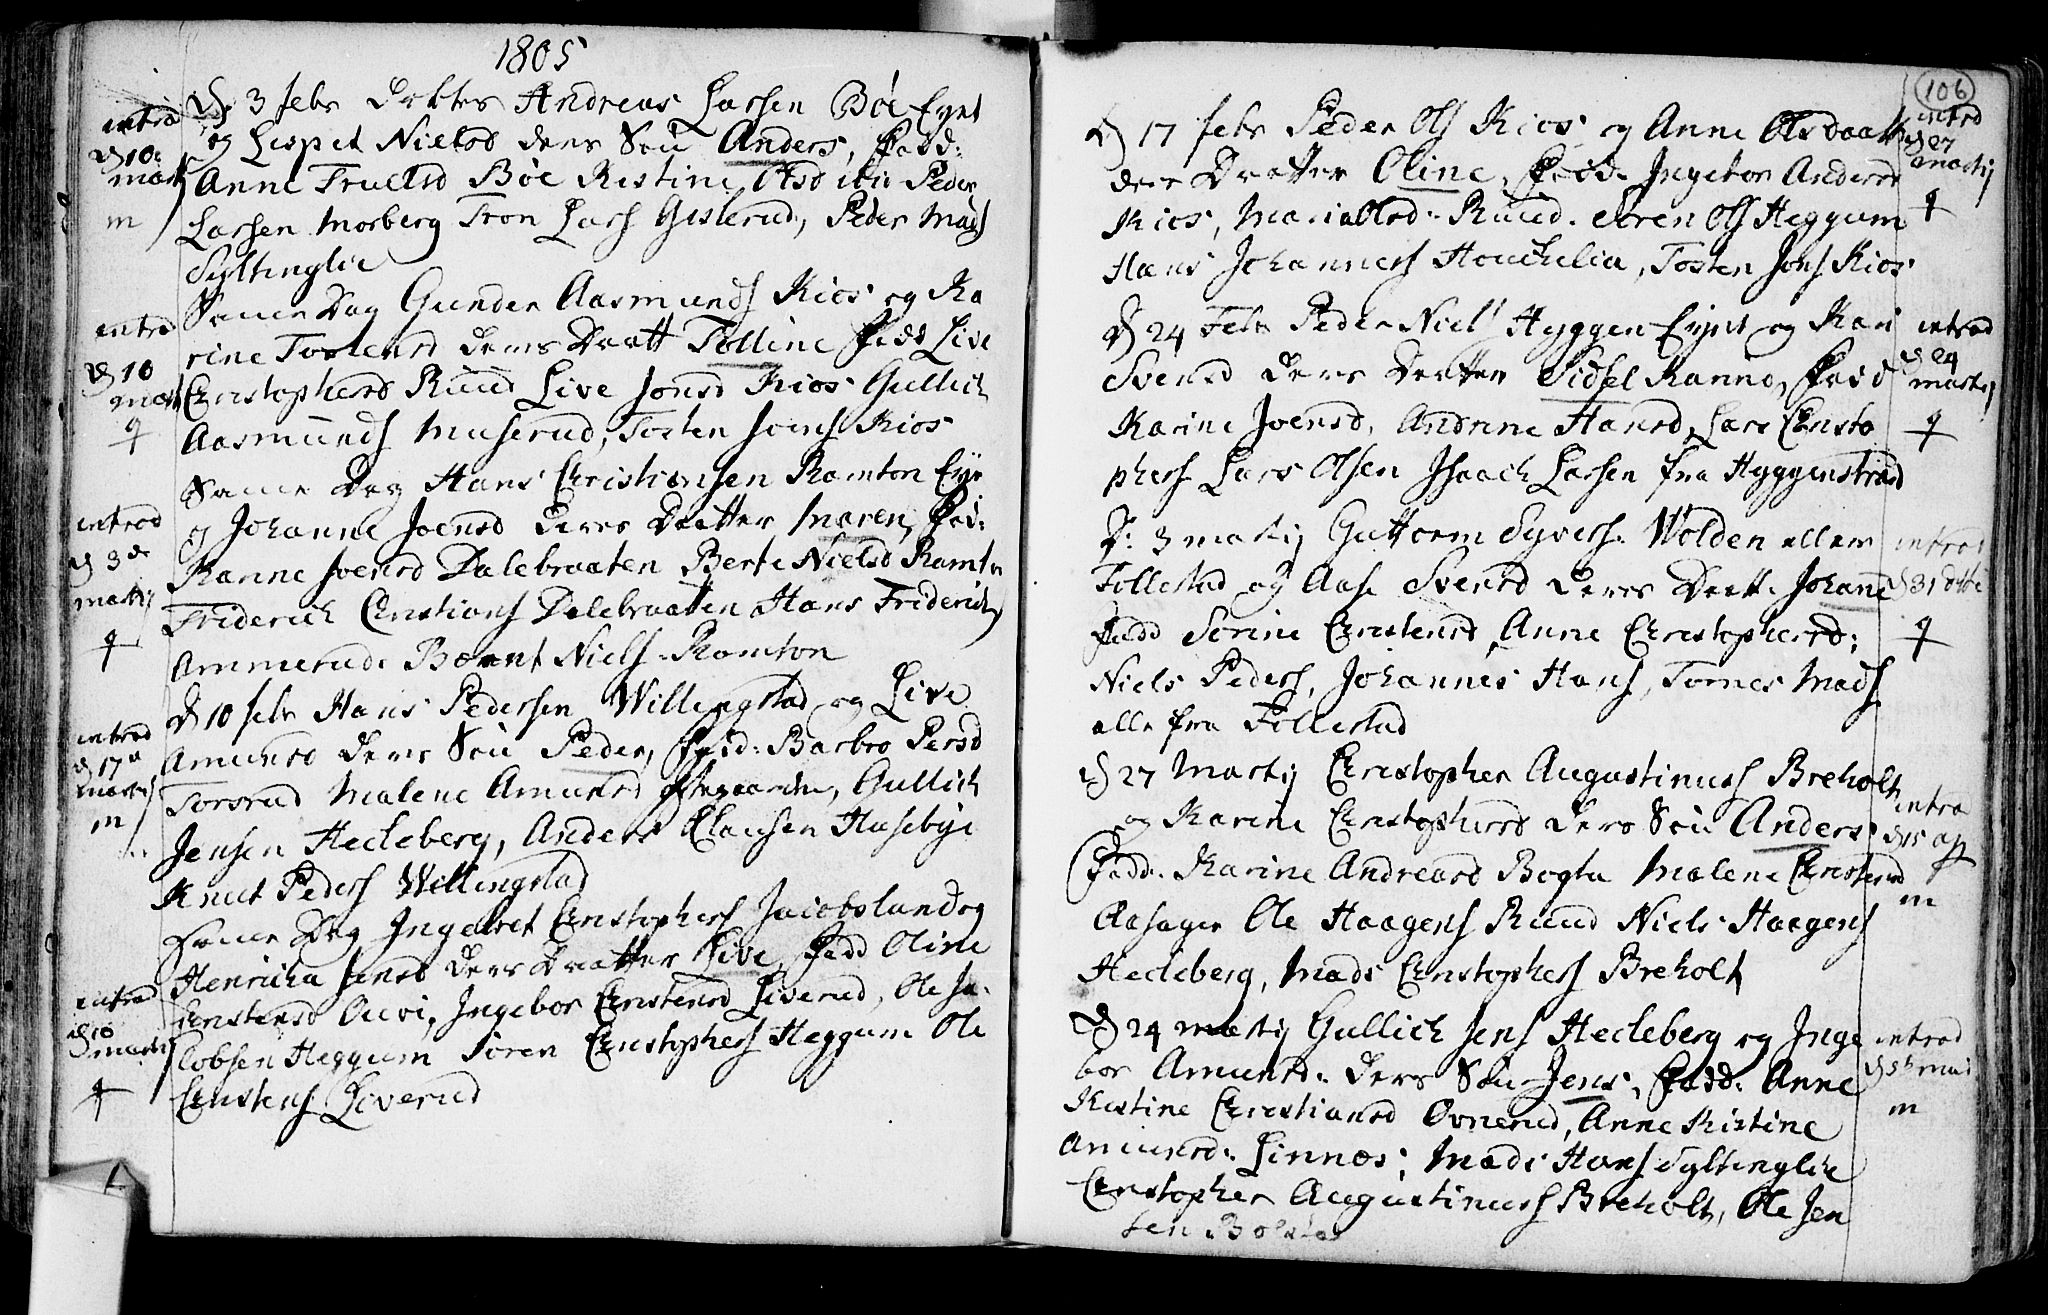 1805
D 3 febr Døbtes Andreas Larsen Bøe Eynt
og Lispet Nielsd ders Søn Anders, Fadd:
Anne Truelsd Bøe Kistine Olsd ibid Peder
Larsen Morberg Tron Lars Gislerud, Peder Mads
Syltinglie
intrd
D 10
mart
m
Same Dag Gunder Aasmunds Kios og Ka
rine Tostensd ders Daatt Tolline Fadd Live
Christophersd Ruud Live Jonsd Kios Gullich
Aasmunds Muserud, Tosten Joens Kios
intrd
D 10
mart
q
Same Dag Hans Christiansen Ramton Eyr
og Johanne Joensd deres Daatter Maren, Fad:
Ranne Joensd Dalebraaten Berte Nielsd Ramtn
Friderich Christians Dalebraaten Hans Friderichs
Ammerud Bærnt Niels Ramton
introd
D 3de
martij
q
D 10 febr Hans Pedersen Willingstad og Live
Amunsd ders Søn Peder, Fadd: Barbro Persd
Torsrud Malene Amunsd Gullich
Jensen Hecleberg, Anders Clausen Husebye
Knut Peders Willingstad
introd
D 17
martij
m
Same Dag Ingebret Christophers Jacobsland og
Henricha Jensd ders Daatter Live Fadd Oline
Christensd Ingebor Christensd Liverud, Ole Ja-
cobsen Heggum Søren Christophers Heggum Ole
Christens Liverud
introd
D 10
martij
q
106
D 17 febr Peder Ols Kios og Anne Olsdaatt
ders Daatter Oline, Fadd. Ingebor Andersd
Kios, Maria Olsd Ruud. Søren Ols Heggum
Hans Johanners Houchelia, Tosten Jons Kios
introd
D 27
martij
q
D 24 Febr Peder Niels Hyggen Eynt og Kari
Svensd ders Daatter Sidsel Ranne, Fadd
Karine Joensd, Andrine Hansd, Lars Christo
phers Lars Olsen Isaach Larsen fra Hyggenstrand
introd
D 24
martij
q
D: 3 martij Guttorm Syvers. Wolden ellers
Follestad og Aase Svensd ders Daatt. Johanne
Fadd Sørine Christensd, Anne Christophersd;
Niels Peders, Johannes Hans, Tornes Mads
alle fra Follestad
introd
D 31 dtto
q
D 27 Martij Christopher Augustinuss Breholt
og Karine Christophersd ders Søn Anders
Fadd. Karine Andreasd Bogta Malene Christensd
Aasager Ole Haagens Ruud Niels Haagens
Hecleberg, Mads Christophers Breholt
introd
D 15 ap
m
D 24 martij Gullich Jens Hecleberg og Inge
bor Amunsd. ders Søn Jens, Fadd. Anne
Kistine Christiansd Ovnerud, Anne Kistine
Amunsd. Linnæs, Mads Hans Syltinglie
Christopher Augustinuss Breholt, Ole Jen
sen
introd
D 5t mai
m